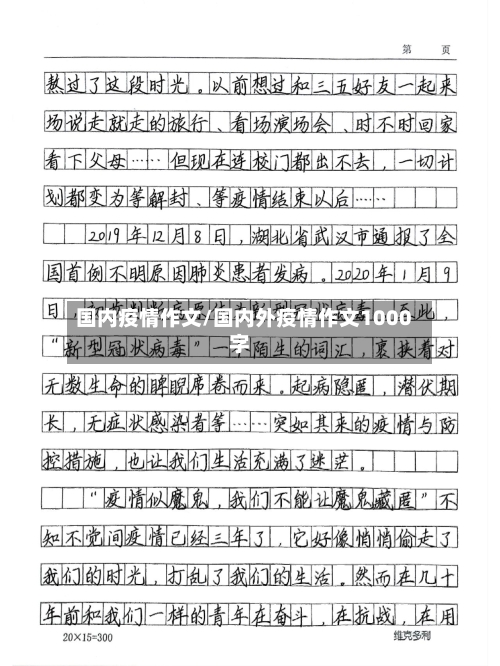 第 页
熬过了这段时光。以前想过和三五好友一起来
场说走就走的旅行、看场演场会、时不时回家
看下父母……但现在连校门都出不去，一切计
划都变为等解封、等疫情结束以后……
2019年12月8日，湖北省武汉市通报了全
国首例不明原因肺炎患者发病。2020年1月9
日，
此，
国内疫情作文/国内外疫情作文1000
字
“新型冠状病毒”一 陌生的词汇，裹挟着对
无数生命的睥睨席卷而来。起病隐匿，潜伏期
长，无症状感染者等……突如其来的疫情与防
控措施，也让我们生活充满了迷茫。
“疫情似魔鬼，我们不能让魔鬼藏匿”不
知不觉间疫情已经三年了，它好像悄悄偷走了
我们的时光，打乱了我们的生活。然而在几十
年前和我们一样的青年在奋斗，在抗战，在用
20×15=300 维克多利